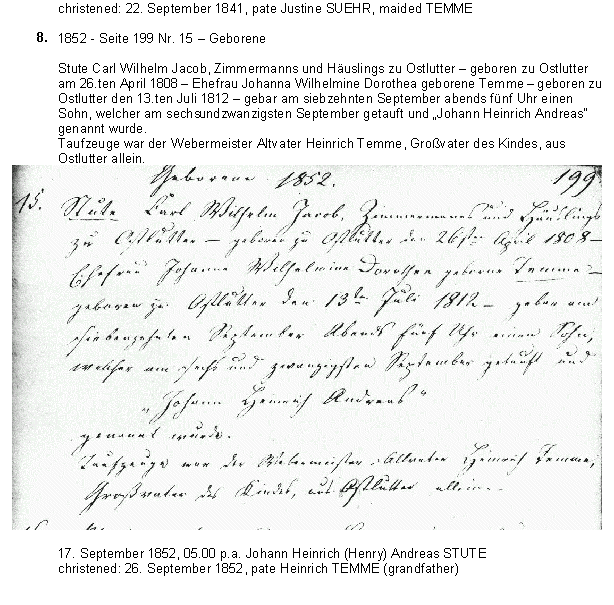 christened: 22. September 1841, pate Justine SUEHR, maided TEMME
8. 1852 - Seite 199 Nr. 15 – Geborene
Stute Carl Wilhelm Jacob, Zimmermanns und Häuslings zu Ostlutter – geboren zu Ostlutter
am 26.ten April 1808 – Ehefrau Johanna Wilhelmine Dorothea geborene Temme – geboren zu
Ostlutter den 13.ten Juli 1812 – gebar am siebzehnten September abends fünf Uhr einen
Sohn, welcher am sechsundzwanzigsten September getauft und „Johann Heinrich Andreas“
genannt wurde.
Taufzeuge war der Webermeister Altvater Heinrich Temme, Großvater des Kindes, aus
Ostlutter allein.
Geborene 1852. 199
15. Stute Carl Wilhelm Jacob, Zimmermanns und Häuslings
zu Ostlutter – geboren zu Ostlutter den 26ten April 1808 –
Ehefrau Johanne Wilhelmine Dorothea geborne Temme –
geboren zu Ostlutter den 13ten Juli 1812 – gebar am
siebenzehnten September Abends fünf Uhr einen Sohn,
welcher am sechs und zwanzigsten September getauft und
„Johann Heinrich Andreas“
genannt wurde.
Taufzeuge war der Webermeister Altvater Heinrich Temme,
Großvater des Kindes, aus Ostlutter allein.
17. September 1852, 05.00 p.a. Johann Heinrich (Henry) Andreas STUTE
christened: 26. September 1852, pate Heinrich TEMME (grandfather)